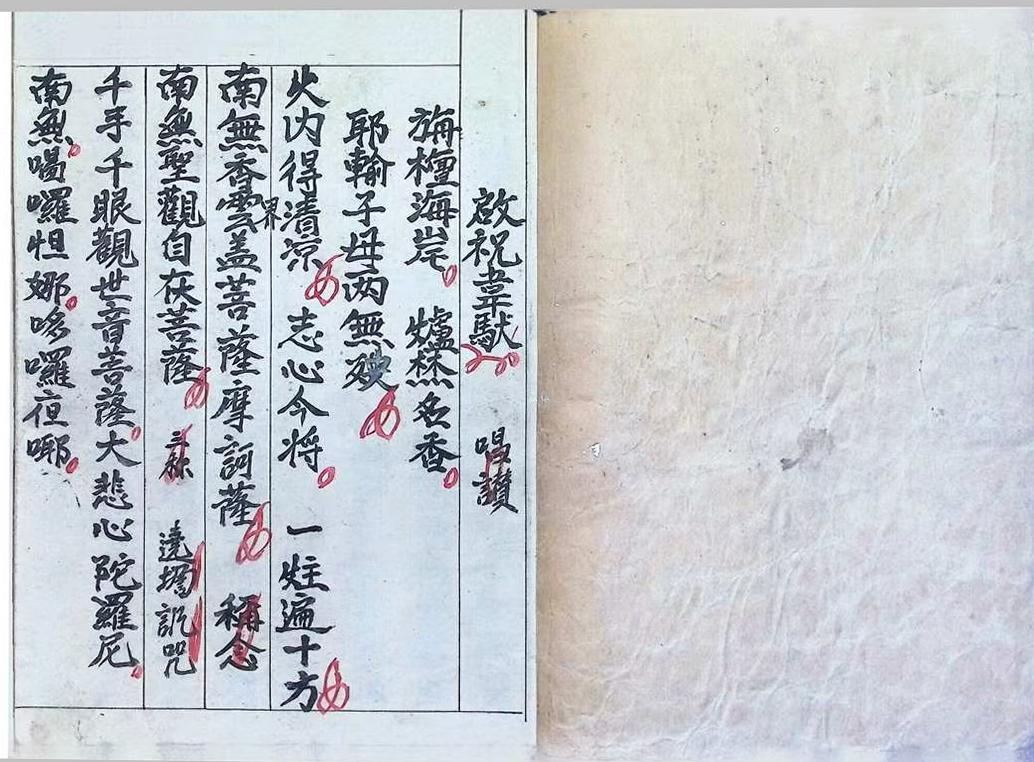 啟祝韋馱 唱讃
旃檀海岸 爐爇名香
耶輸子母兩無殃
火內得清凉 志心今将 一炷遍十方
南無香雲盖菩薩摩訶薩 稱念
界
南無聖觀自在菩薩 三称 遶壇誦咒
千手千眼觀世音菩薩大悲心陀羅尼
南無喝囉怛娜哆囉夜哪